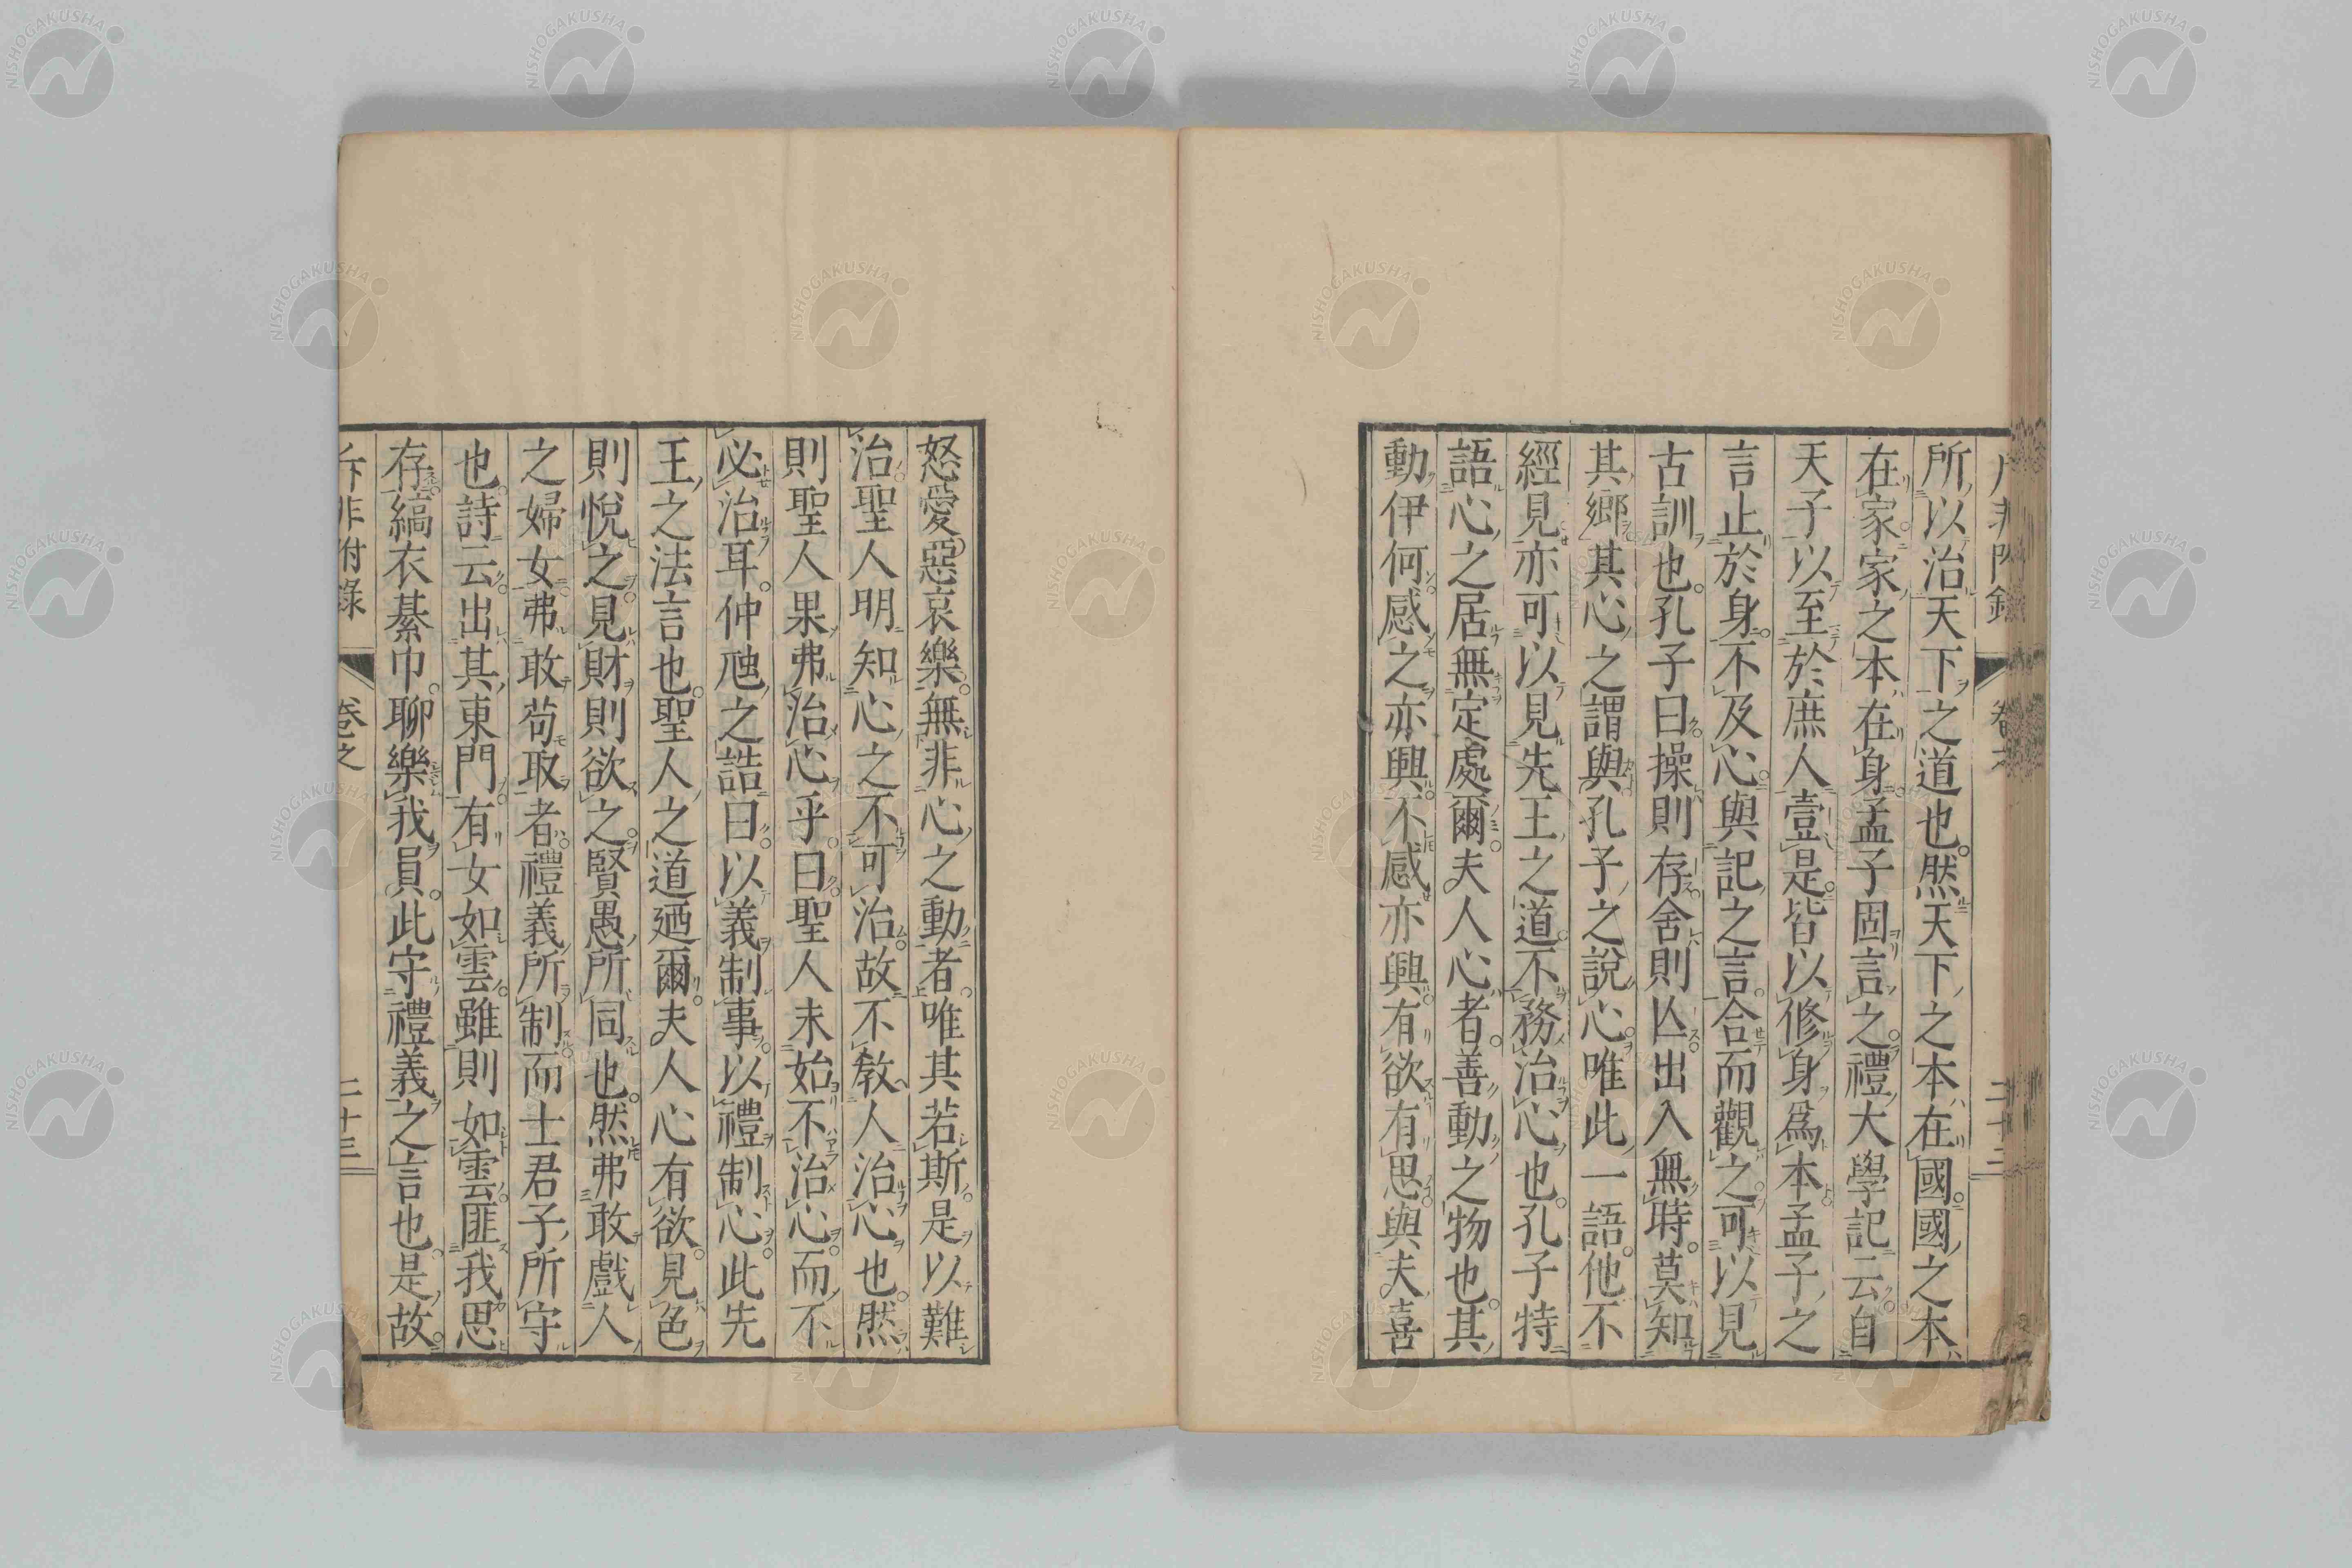 所以治天下之道也。然天下之本在國。國之本
在家。家之本在身。孟子固言之。禮大學記云。自
天子以至於庶人壹是。皆以修身爲本。孟子之
言止於身。不及心。與記之言。合而觀之。可以見
古訓也。孔子曰。操則存。舍則亾。出入無時。莫知
其鄉。其心之謂與。孔子之說心。唯此一語。他不
經見。亦可以見先王之道。不務治心也。孔子特
語心之居無定處爾。夫人心者。善動之物也。其
動伊何。感之亦興。不感亦興。有欲有思。與夫喜
怒愛惡哀樂。無非心之動者。唯其若斯。是以難
治。聖人明知心之不可治。故不敎人治心也。然
則聖人果弗治心乎。曰。聖人未始不治心。而不
必治耳。仲虺之誥曰。以義制事。以禮制心。此先
王之法言也。聖人之道廼爾。夫人心有欲。見色
則悅之。見財則欲之。賢愚所同也。然弗敢戲人
之婦女。弗敢苟取者。禮義所制。而士君子所守
也。詩云。出其東門。有女如雲。雖則如雲。匪我思
存。縞衣綦巾。聊樂我員。此守禮義之言也。是故
斥非附錄 卷之 二十三
NISHOGAKUSHA